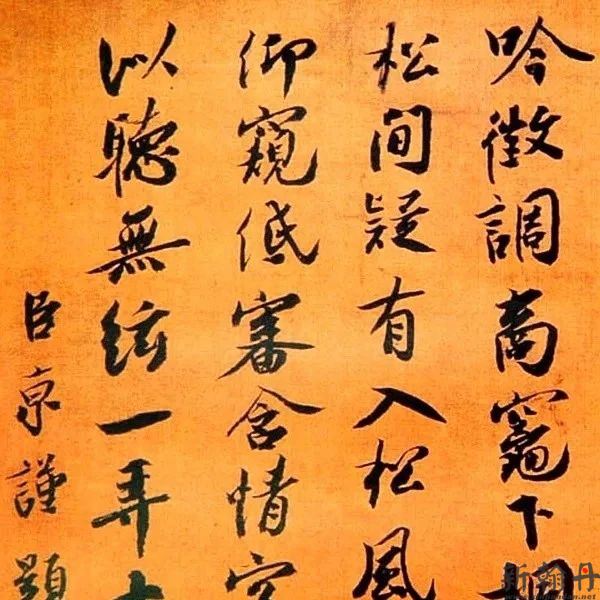 吟徵調商竈下
松間疑有入松風
仰窺低審含情
以聽無絃一弄
臣京謹題
新翰丹